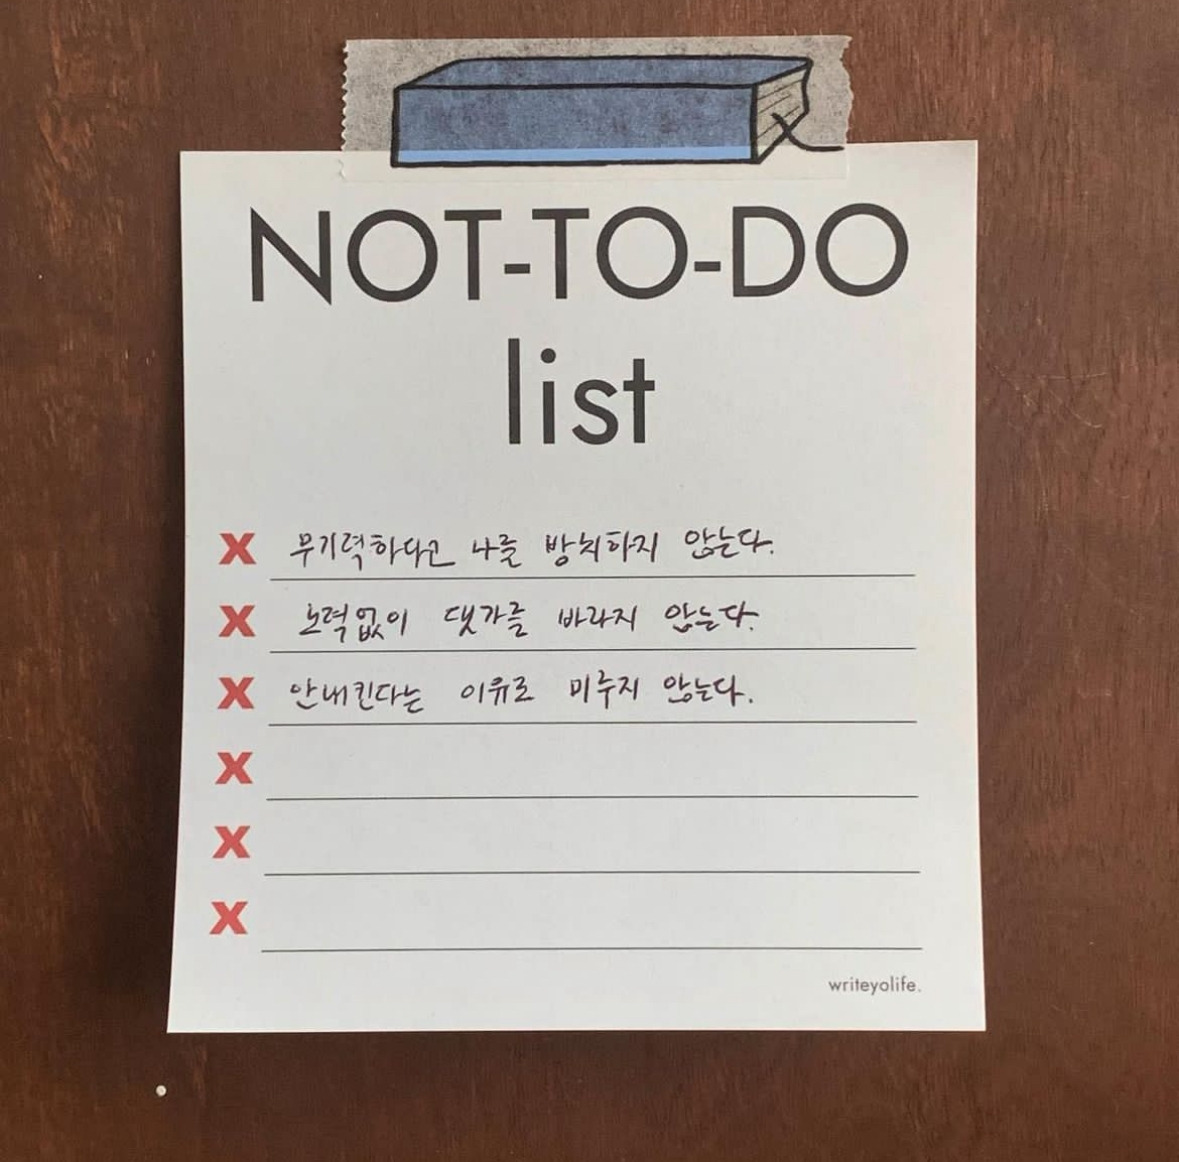 NOT-TO-DO
list
X 무기력하다고 나를 방치하지 않는다.
X 노력없이 댓가를 바라지 않는다.
X 안내킨다는 이유로 미루지 않는다.
X
X
X
writeyolife.